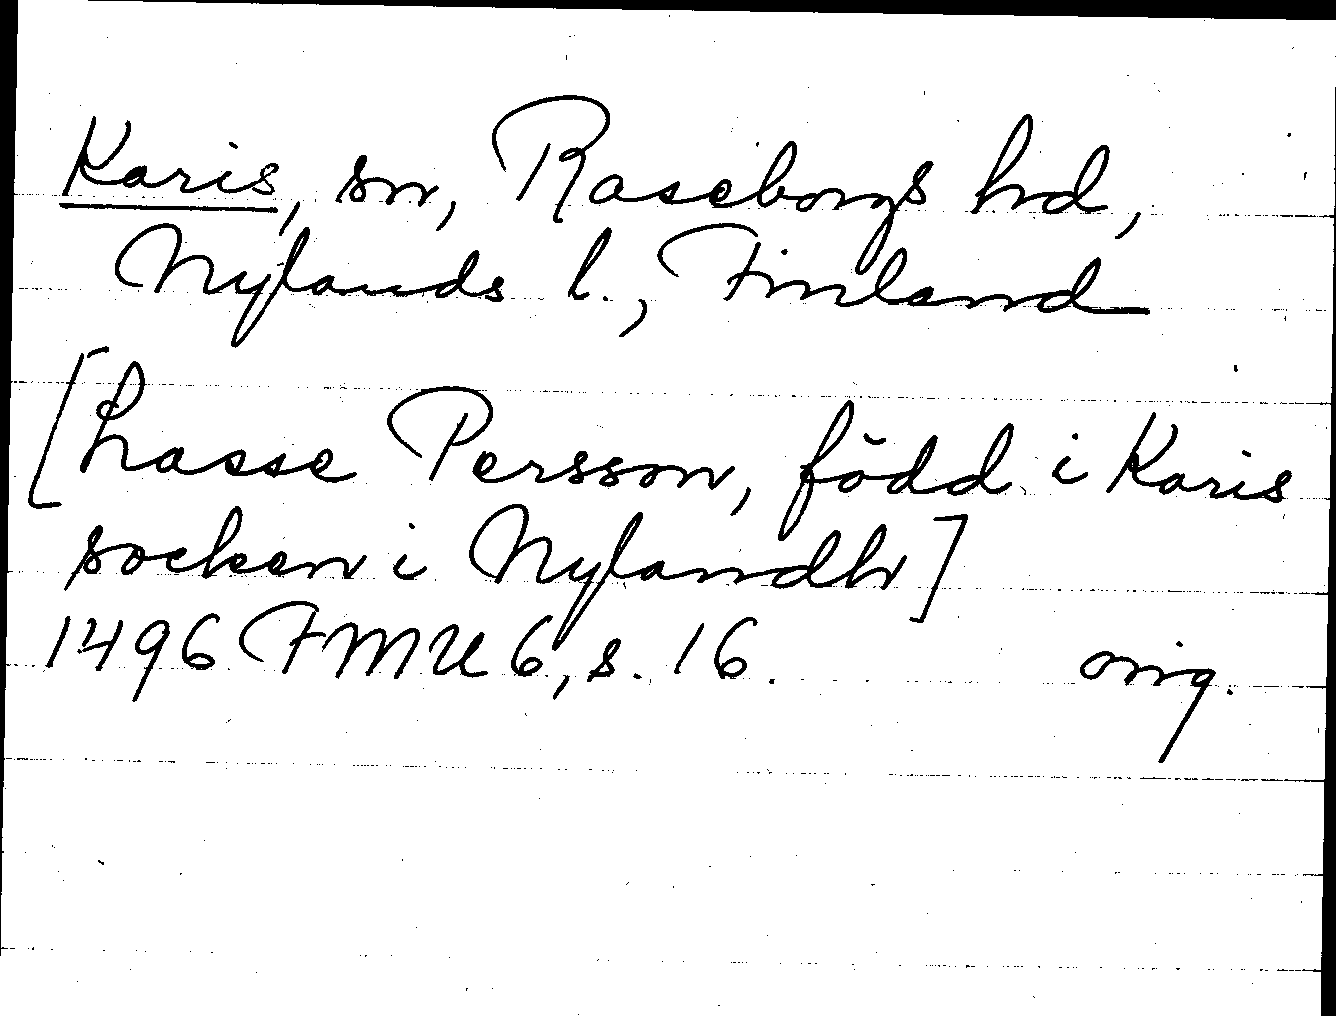 Karis, sn, Raseborgs hd,
Nylands l., Finland
[Lasse Persson, född i Karis
socken i Nylandh]
1496 FMU 6, s. 16. orig.